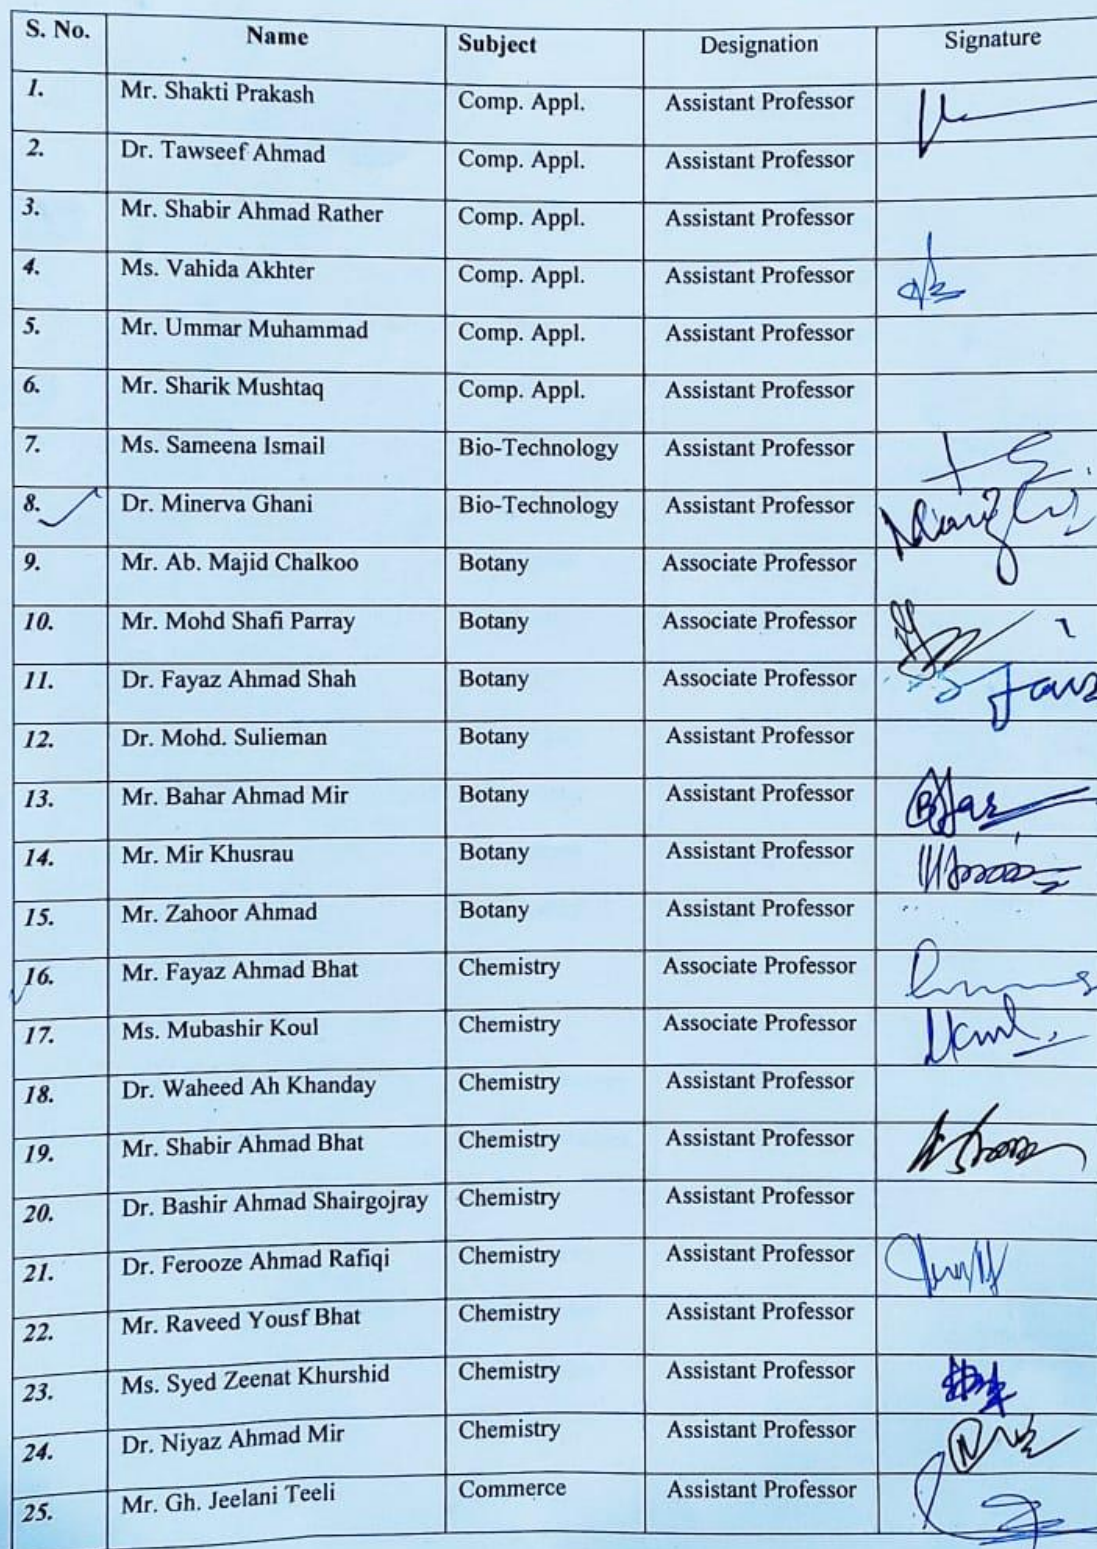 S. No. Name Subject Designation Signature
1. Mr. Shakti Prakash Comp. Appl. Assistant Professor
2. Dr. Tawseef Ahmad Comp. Appl. Assistant Professor
3. Mr. Shabir Ahmad Rather Comp. Appl. Assistant Professor
4. Ms. Vahida Akhter Comp. Appl. Assistant Professor
5. Mr. Ummar Muhammad Comp. Appl. Assistant Professor
6. Mr. Sharik Mushtaq Comp. Appl. Assistant Professor
7. Ms. Sameena Ismail Bio-Technology Assistant Professor
8. Dr. Minerva Ghani Bio-Technology Assistant Professor
9. Mr. Ab. Majid Chalkoo Botany Associate Professor
10. Mr. Mohd Shafi Parray Botany Associate Professor
11. Dr. Fayaz Ahmad Shah Botany Associate Professor
12. Dr. Mohd. Sulieman Botany Assistant Professor
13. Mr. Bahar Ahmad Mir Botany Assistant Professor
14. Mr. Mir Khusrau Botany Assistant Professor
15. Mr. Zahoor Ahmad Botany Assistant Professor
16. Mr. Fayaz Ahmad Bhat Chemistry Associate Professor
17. Ms. Mubashir Koul Chemistry Associate Professor
18. Dr. Waheed Ah Khanday Chemistry Assistant Professor
19. Mr. Shabir Ahmad Bhat Chemistry Assistant Professor
20. Dr. Bashir Ahmad Shairgojray Chemistry Assistant Professor
21. Dr. Ferooze Ahmad Rafiqi Chemistry Assistant Professor
22. Mr. Raveed Yousf Bhat Chemistry Assistant Professor
23. Ms. Syed Zeenat Khurshid Chemistry Assistant Professor
24. Dr. Niyaz Ahmad Mir Chemistry Assistant Professor
25. Mr. Gh. Jeelani Teeli Commerce Assistant Professor